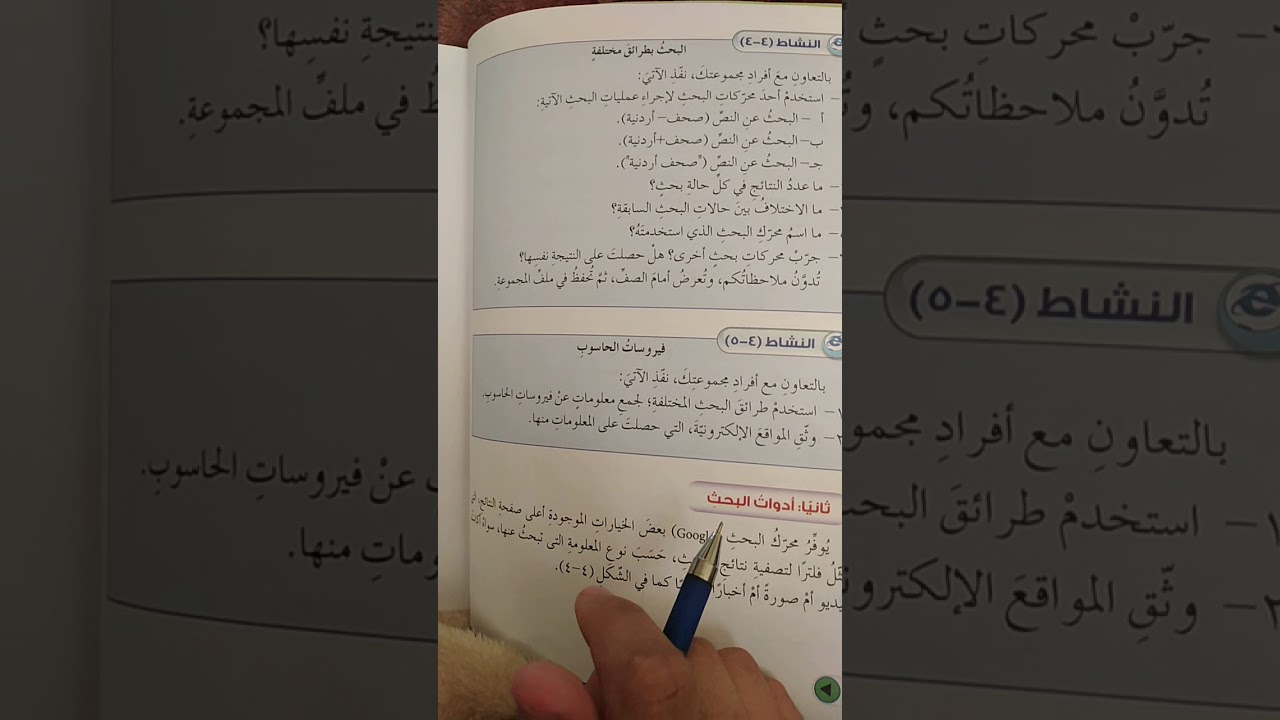 النشاط (٤-٤)
البحثُ بطرائقَ مختلفةٍ
بالتعاونِ معَ أفرادِ مجموعتكَ، نفّذِ الآتيَ:
– استخدمْ أحدَ محرّكاتِ البحثِ لإجراءِ عملياتِ البحثِ الآتيةِ:
أ – البحثُ عنِ النصِّ (صحف–أردنية).
ب– البحثُ عنِ النصِّ (صحف+أردنية).
جـ– البحثُ عنِ النصِّ ("صحف أردنية").
– ما عددُ النتائجِ في كلِّ حالةِ بحثٍ؟
– ما الاختلافُ بينَ حالاتِ البحثِ السابقةِ؟
– ما اسمُ محرّكِ البحثِ الذي استخدمتَهُ؟
– جرّبْ محركاتِ بحثٍ أخرى؟ هلْ حصلتَ على النتيجةِ نفسِها؟
تُدوَّنُ ملاحظاتُكم، وتُعرضُ أمامَ الصفِّ، ثمَّ تُحفظُ في ملفِّ المجموعةِ.
النشاط (٤-٥)
فيروساتُ الحاسوبِ
بالتعاونِ مع أفرادِ مجموعتِكَ، نفّذِ الآتيَ:
١– استخدمْ طرائقَ البحثِ المختلفةِ؛ لجمعِ معلوماتٍ عنْ فيروساتِ الحاسوبِ.
٢– وثّقِ المواقعَ الإلكترونيّةَ، التي حصلتَ على المعلوماتِ منها.
ثانيًا: أدواتُ البحثِ
يُوفّرُ محرّكُ البحثِ (Google) بعضَ الخياراتِ الموجودةِ أعلى صفحةِ النتائجِ،
فلترًا لتصفيةِ نتائجِ حَسَبَ نوعِ المعلومةِ التي تبحثُ عنها، سواءً أكانتْ
أمْ صورةً أمْ أخبارًا كما في الشّكلِ (٤-٤).